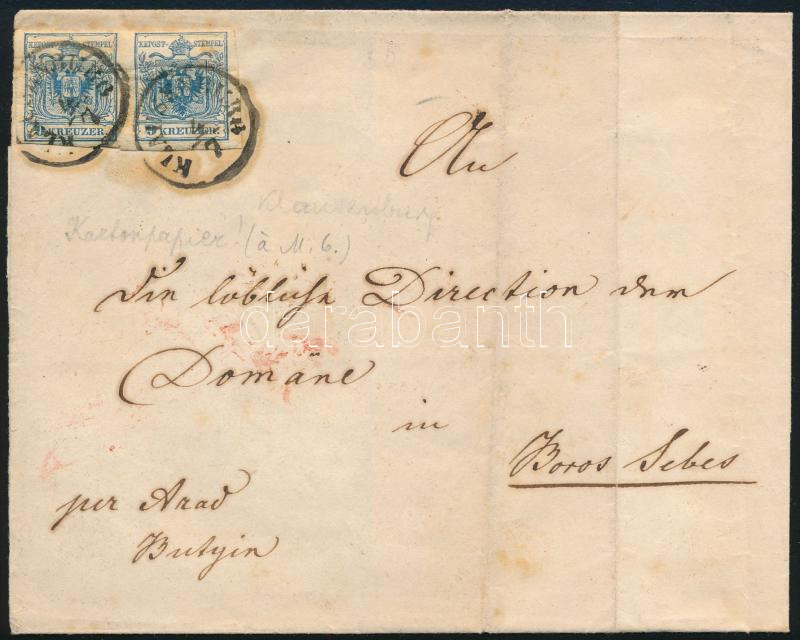 KK POST-STEMPEL KK POST-STEMPEL
9 KREUZER. 9 KREUZER.
An
Klausenburg
Kartonpapier! (à M. 6.)
die löbliche Direction der
darabanth
Domäne
in
Boros Sebes
per Arad
Butyin